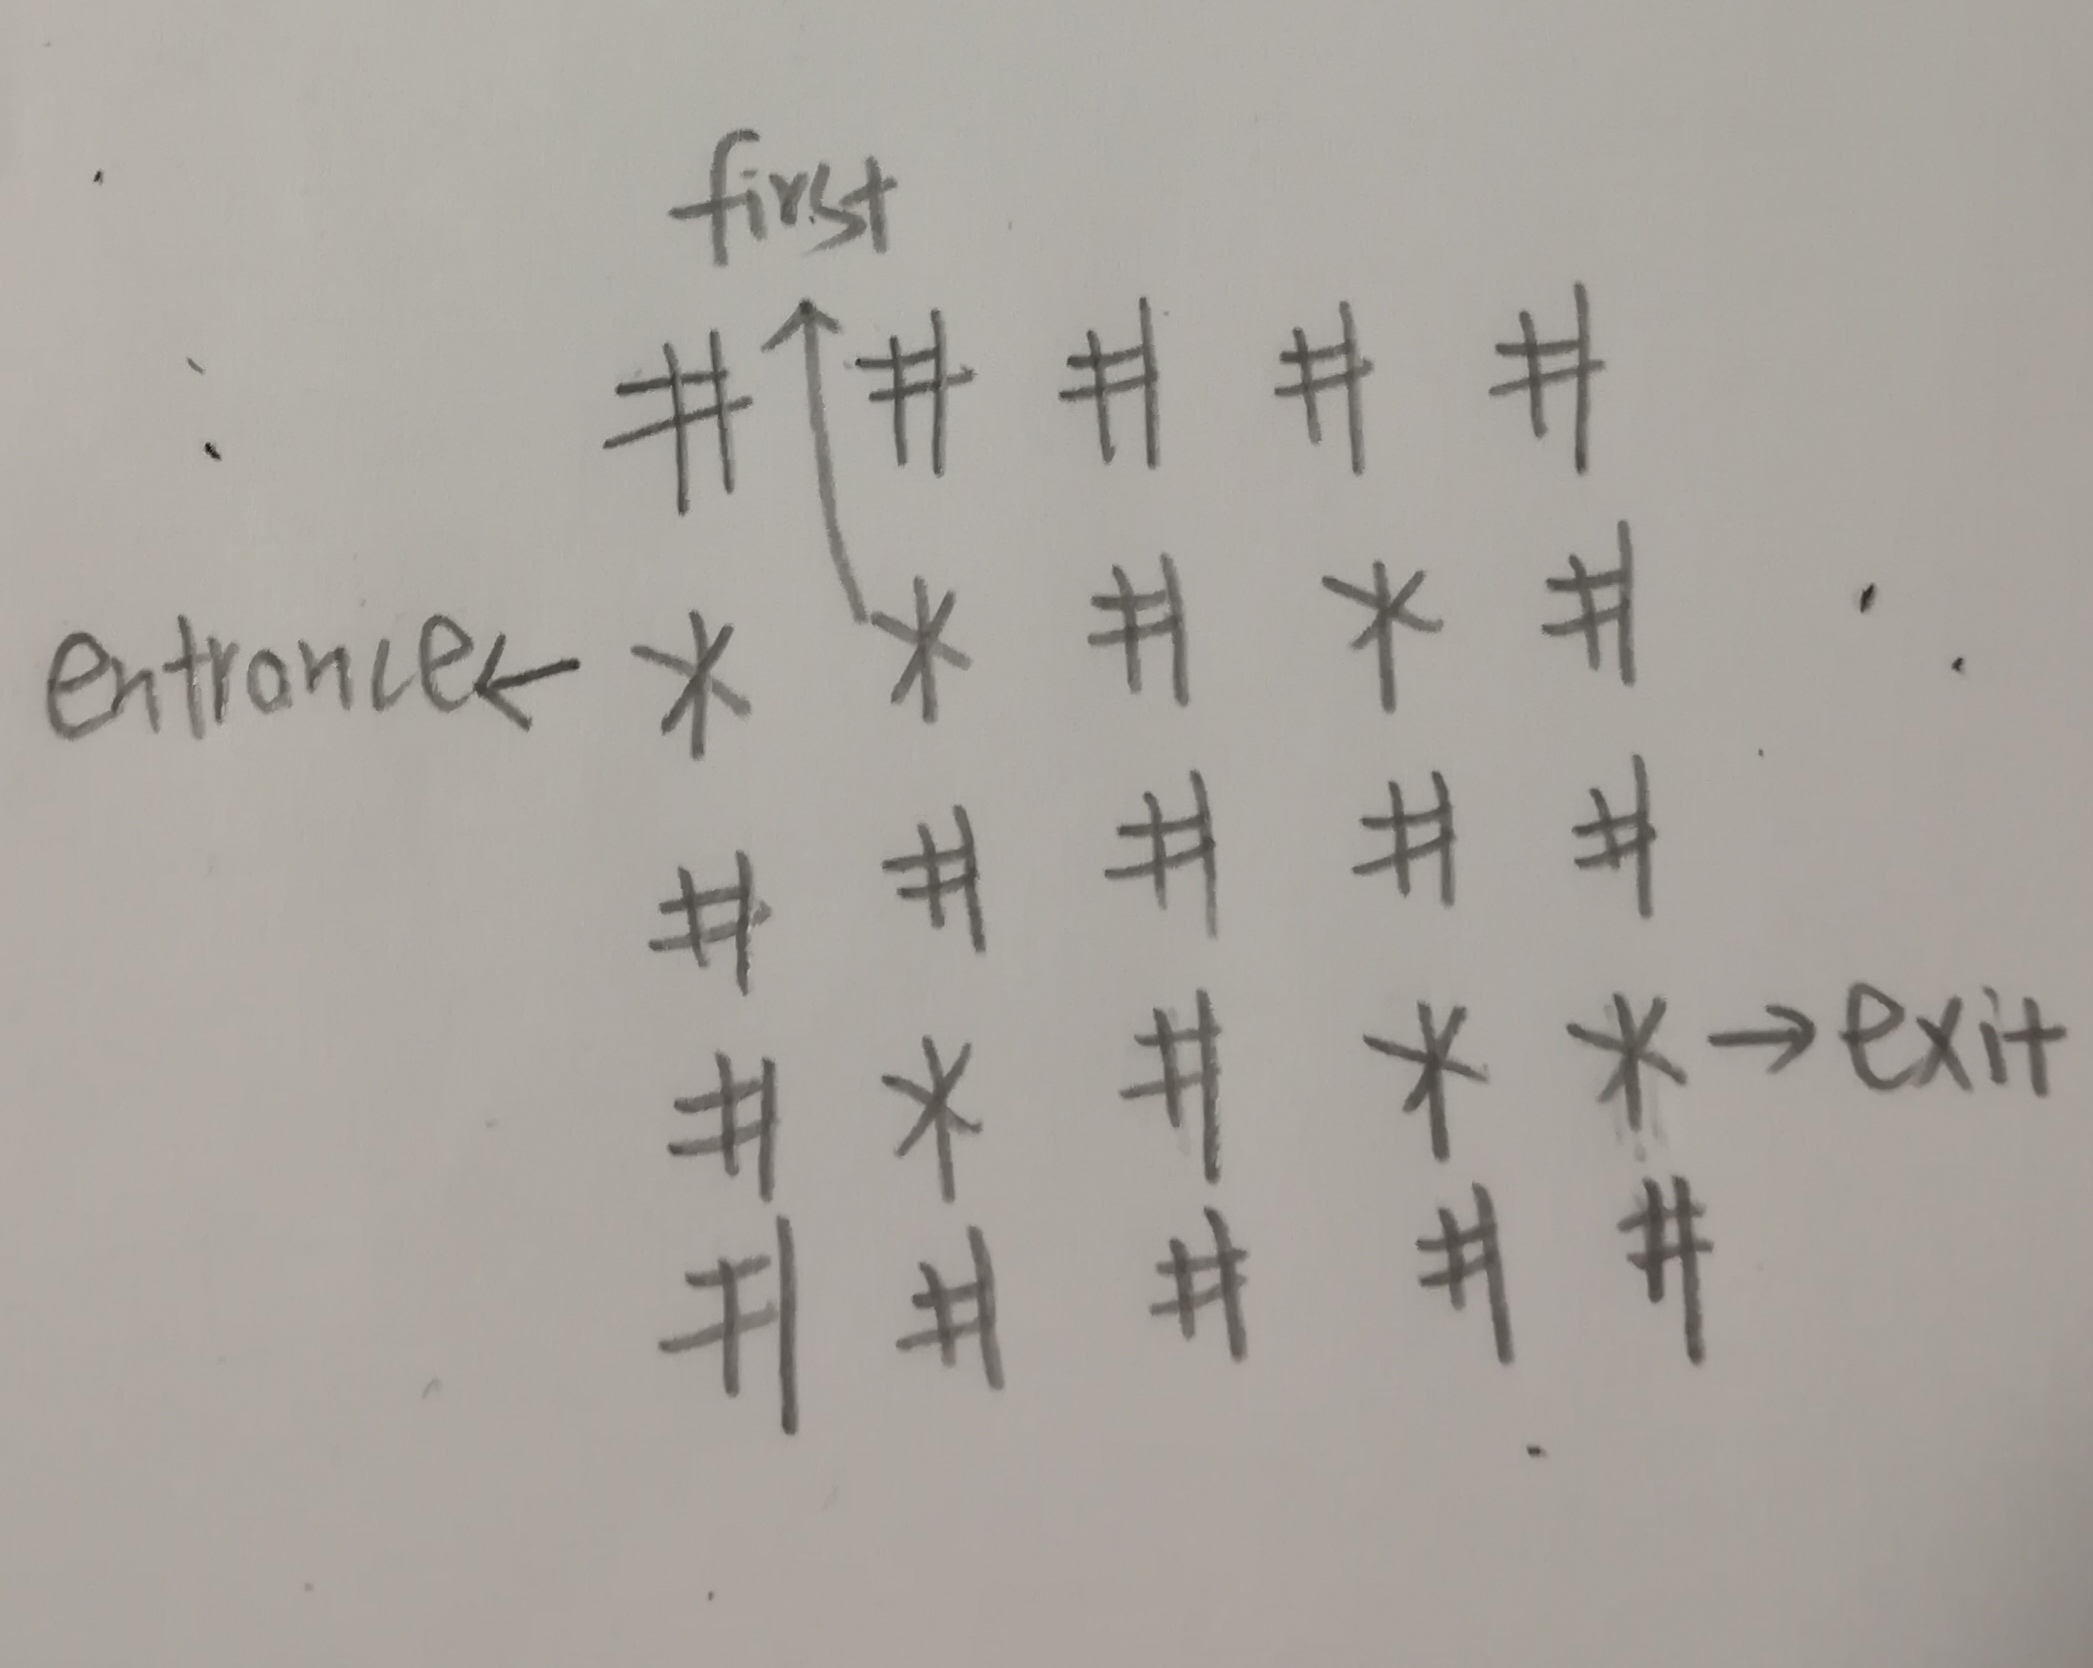 first
# # # # #
entrance ← * * # * #
# # # # #
# * # * * → exit
# # # # #